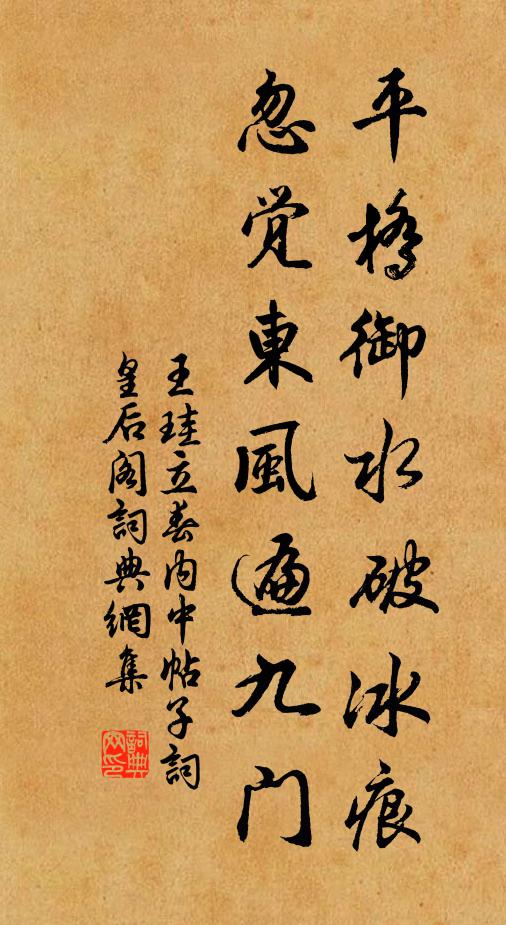 平橋御水破冰痕
忽覚東風遍九门
王珪立春内中帖子詞
皇后阁詞典網集
詞典網印